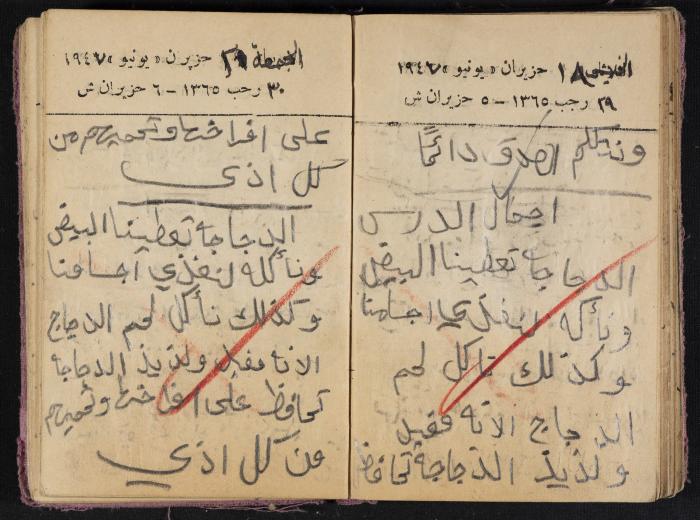 الثلاثاء ١٨ حزيران «يونيو» ١٩٤٧
٢٩ رجب ١٣٦٥ – ٥ حزيران ش
ونتكلم الصدق دائمًا
اجمال الدرس
الدجاجة تعطينا البيض
ونأكله لنغذي اجسامنا
وكذلك نأكل لحم
الدجاج الانه مفيل
ولذيذ الدجاجة تحافظ
١٩ حزيران «يونيو» ١٩٤٧
٣٠ رجب ١٣٦٥ – ٦ حزيران ش
على افراخها وتحميهم من
كل اذى
الدجاجة تعطينا البيض
ونأكله لنغذي اجسامنا
وكذلك نأكل لحم الدجاج
الانه مفيل ولذيذ الدجاجة
تحافظ على افراخها وتحميهم
من كل اذي